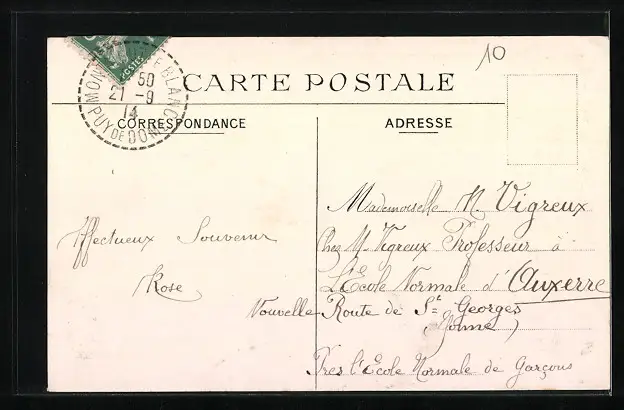 10
POSTES
50
21 - 9
14
PUY DE DOME
CARTE POSTALE
CORRESPONDANCE
ADRESSE
Affectueux Souvenir
Rose
Mademoiselle H. Vigreux
Chez M. Vigreux Professeur à
L'École Normale d'Auxerre
Nouvelle Route de St Georges
(Yonne)
Près l'École Normale de Garçons